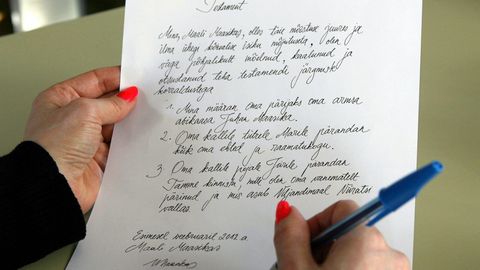 Testament
Mina, Marli Maasikas, olles täie mõistuse juures ja
ilma ühegi kõrvalise isiku mõjutuseta, olen
väga põhjalikult mõelnud, kaalunud ja
otsustanud teha testamendi järgmiste
korraldustega
1. Mina määran oma pärijaks oma armsa
abikaasa Juhan Maasika.
2. Oma kallile tütrele Marule pärandan
kõik oma ehted ja raamatukogu.
3 Oma kallile pojale Taule pärandan
Tamme kinnistu, mille olen oma vanematelt
pärinud ja mis asub Viljandimaal Nõvatis
vallas
Esimesel veebruaril 2012.a
Marli Maasikas